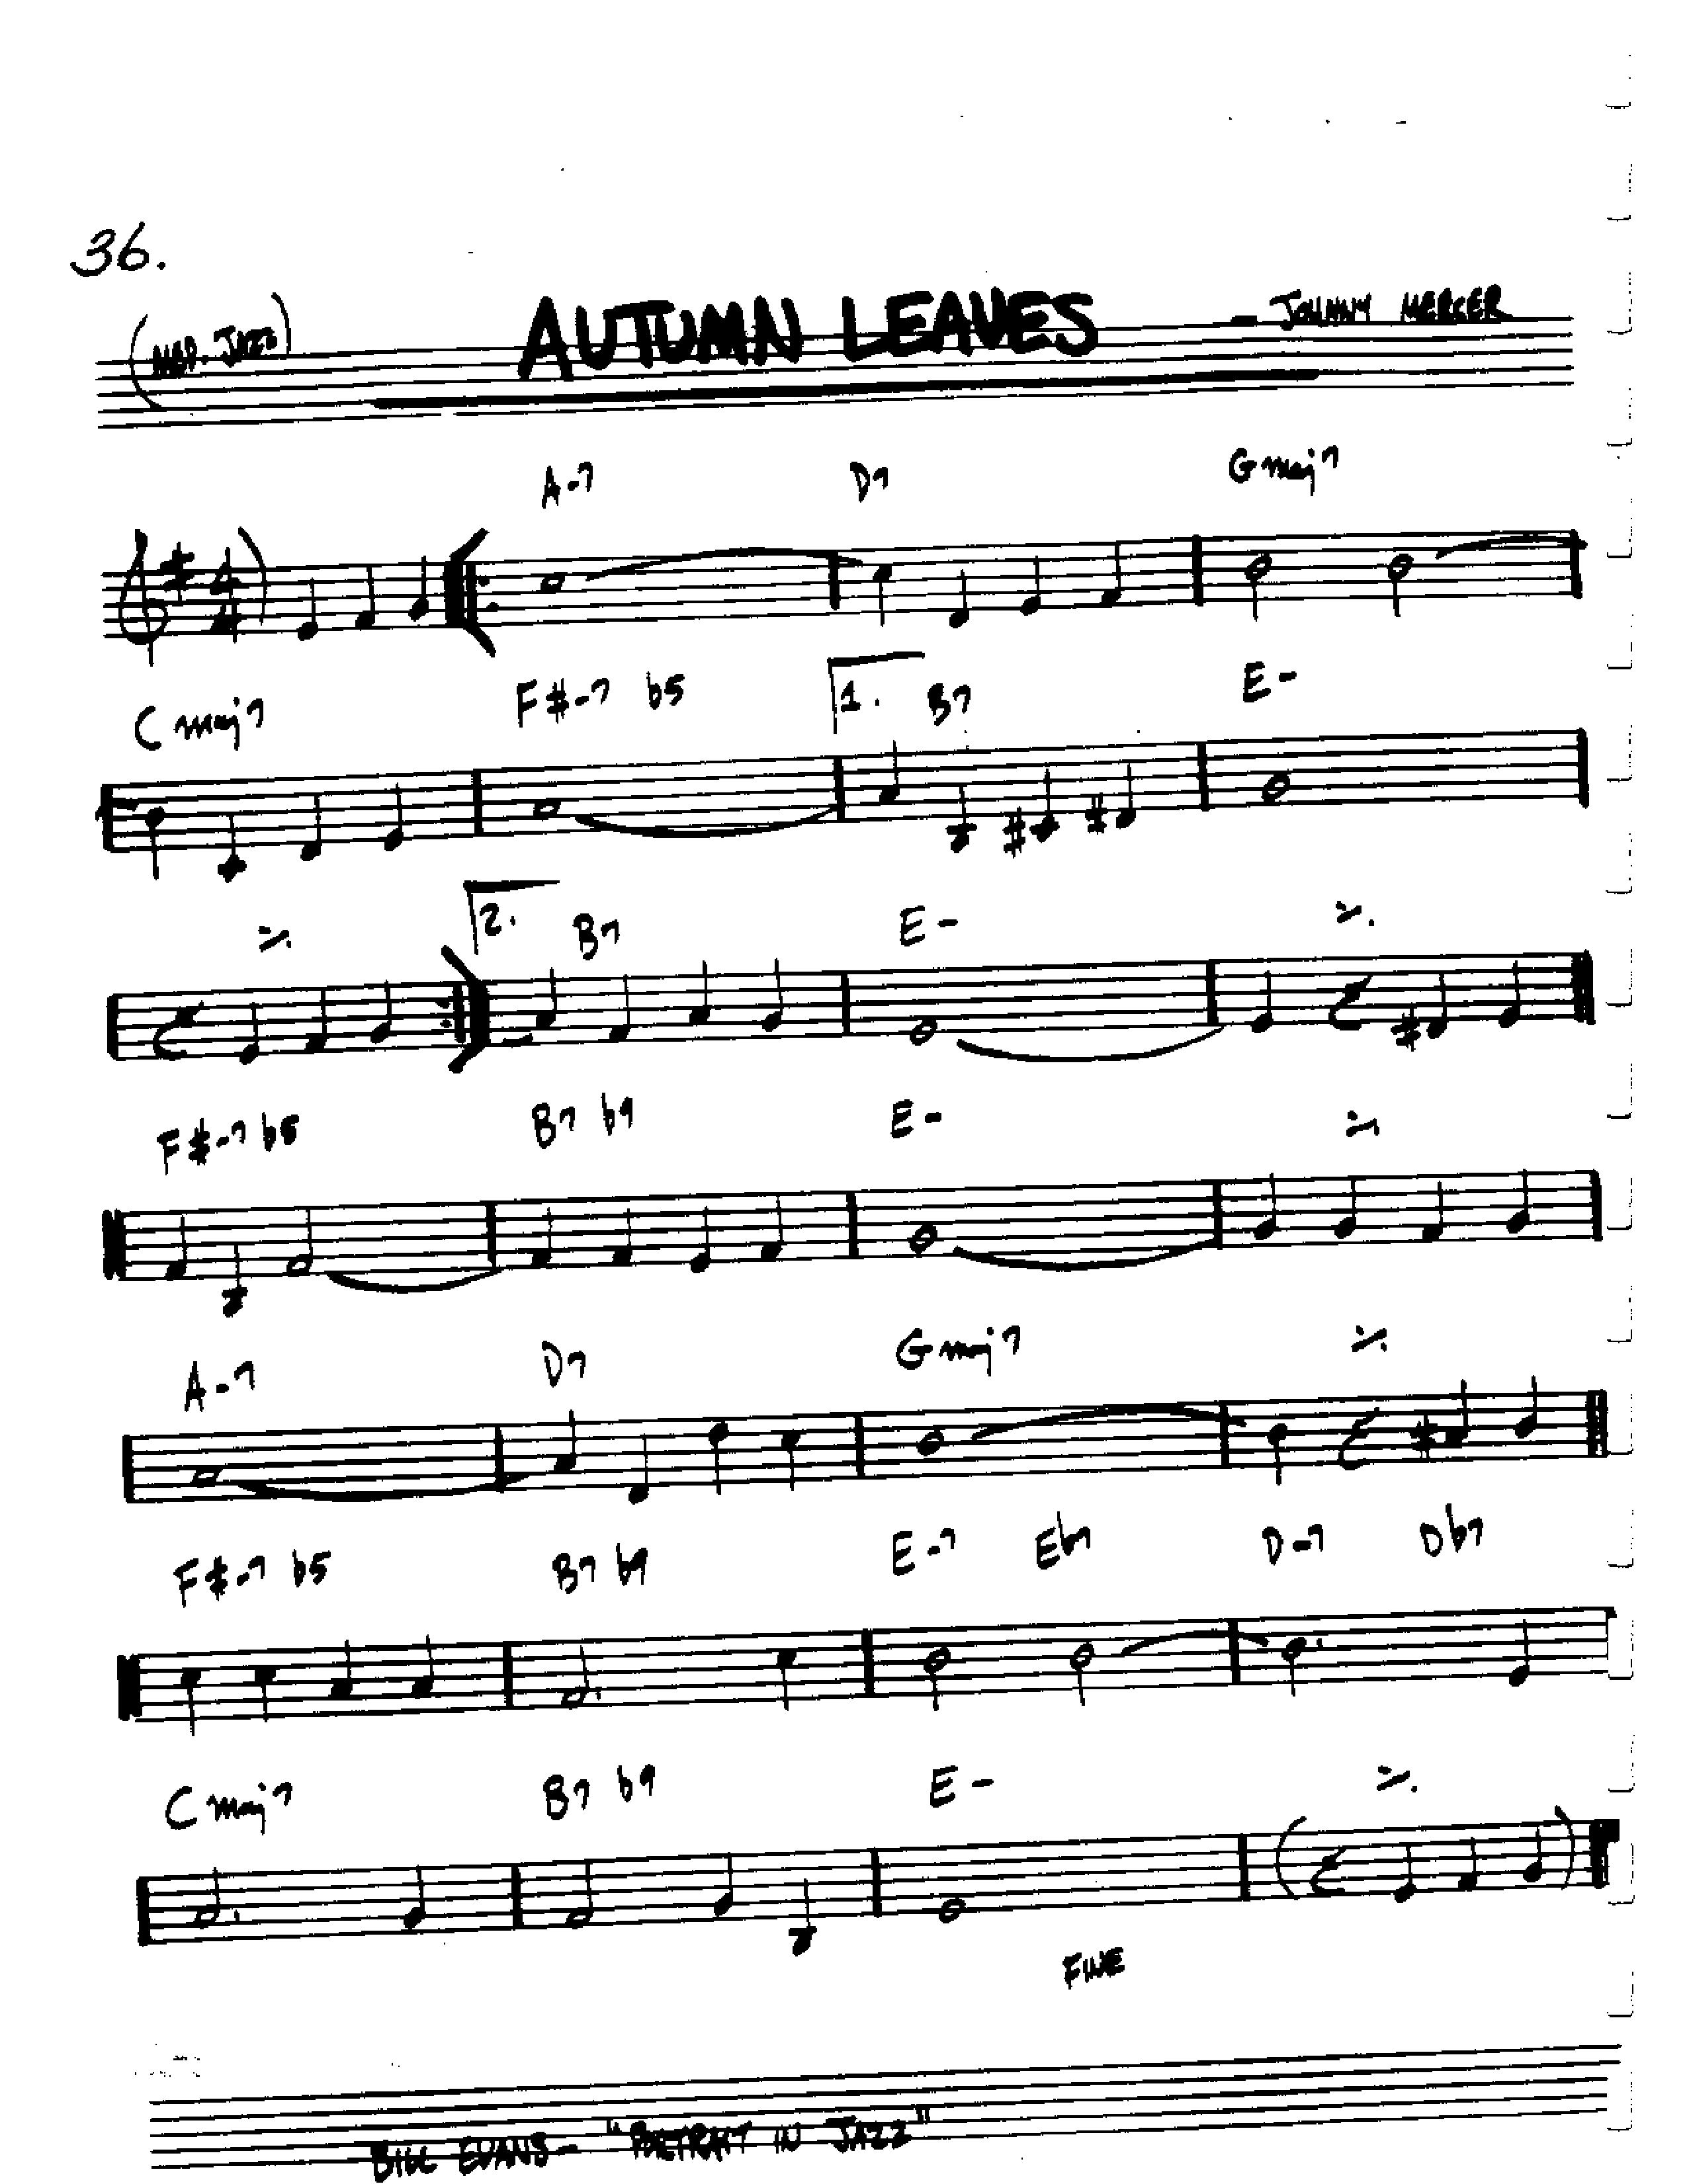 36.
(MED. JAZZ) AUTUMN LEAVES - JOHNNY MERCER
A-7 D7 Gmaj7
4
4
Cmaj7 F#-7 b5 1. B7 E-
٪ 2. B7 E- ٪
F#-7 b5 B7 b9 E- ٪
A-7 D7 Gmaj7 ٪
F#-7 b5 B7 b9 E-7 Eb7 D-7 Db7
Cmaj7 B7 b9 E- ٪
FINE
BILL EVANS - "PORTRAIT IN JAZZ"